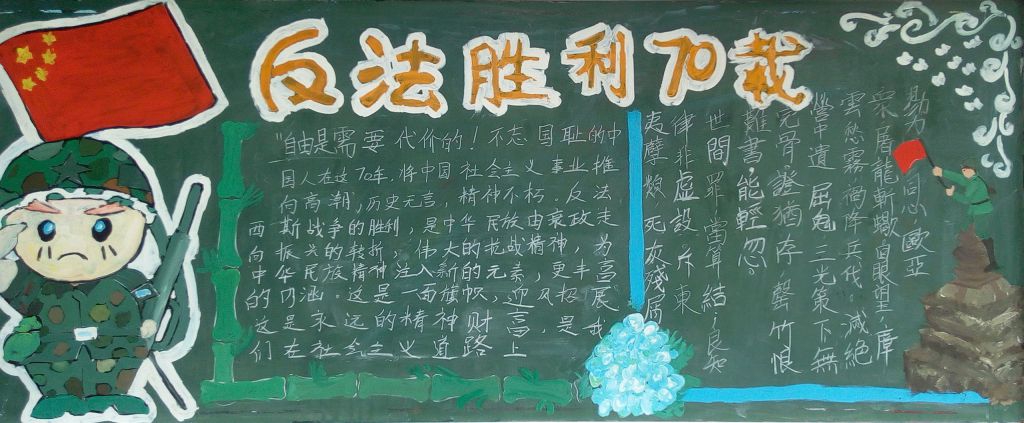 反法胜利70载
"自由是需要代价的！不忘国耻的中
国人在这70年，将中国社会主义事业推
向高潮，历史无言，精神不朽。反法
西斯战争的胜利，是中华民族由衰败走
向振兴的转折，伟大的抗战精神，为
中华民族精神注入新的元素，更丰富
的内涵。这是一面旗帜，迎风招展
这是永远的精神财富，是我
们在社会主义道路上
勠力同心歐亞
衆屠龍斬蠍自眼里。
雲愁霧禍降兵代。滅絕
營中遺屈鬼三光策下無
完骨證猶存罄竹恨
難書，能輕忽。
世間罪當算結。良知
律非虛設斥東
夷孽 死灰殘局